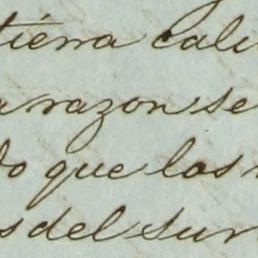 tierra cali
razon se
do que las
s del sur